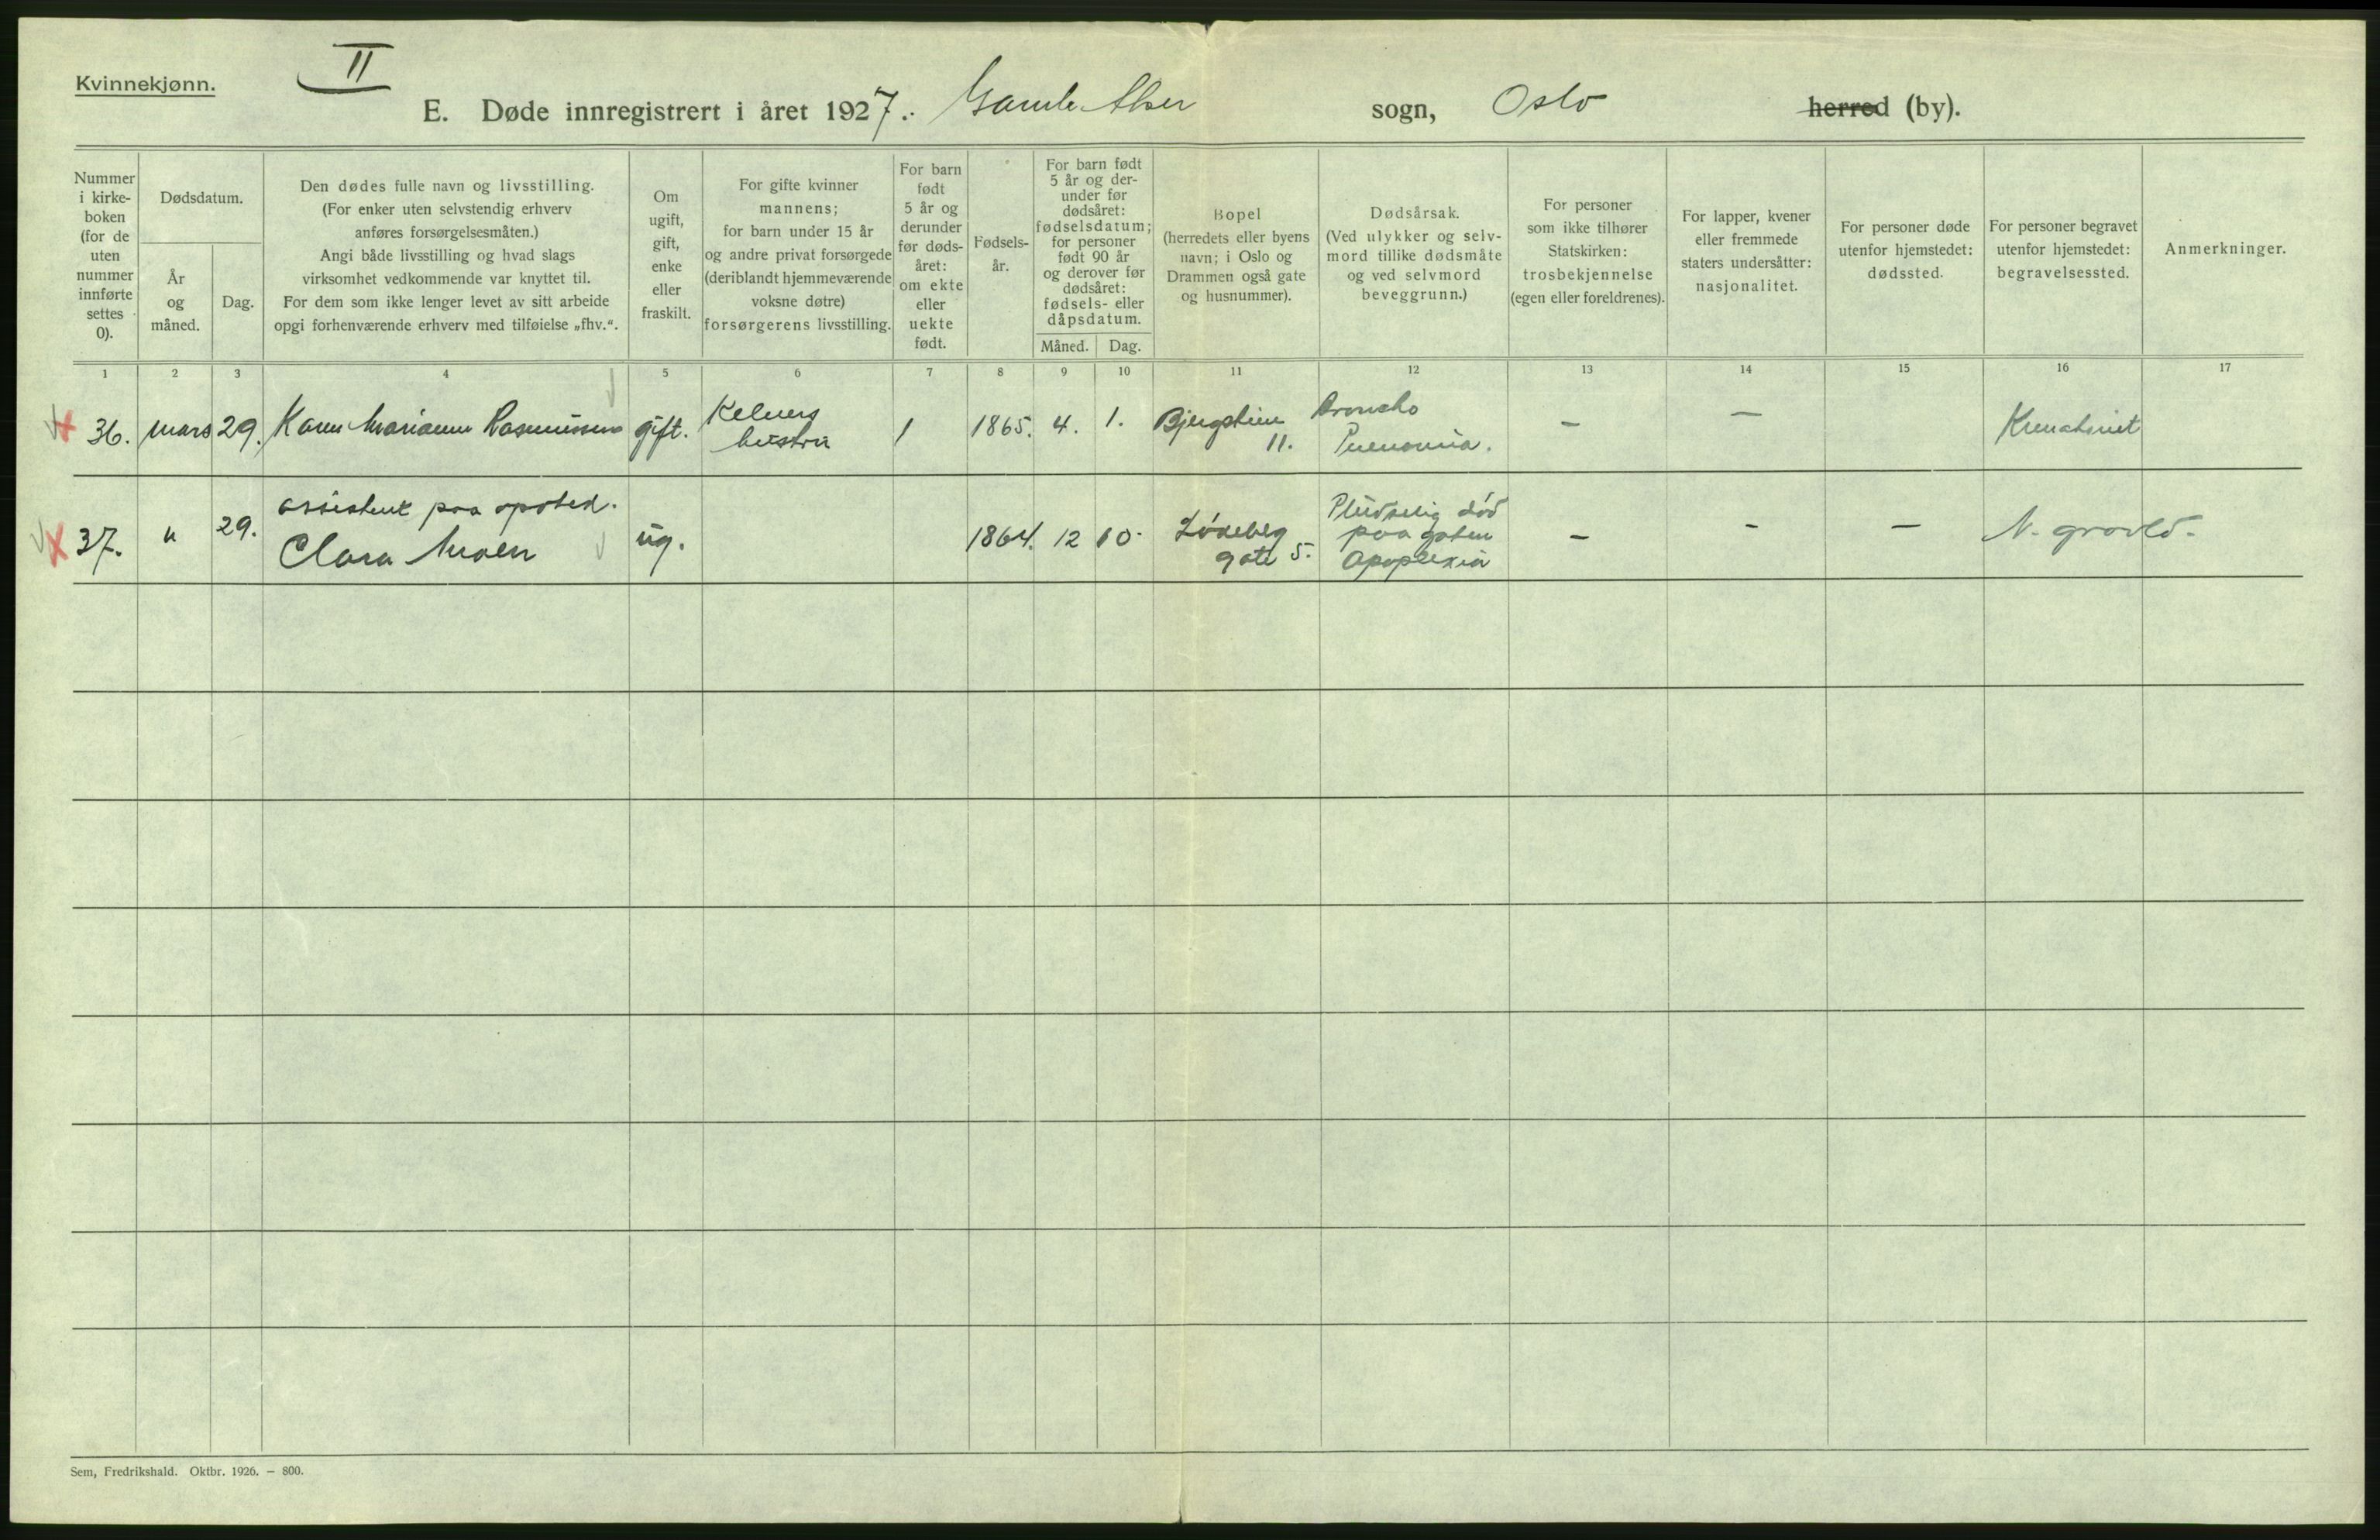 II
Kvinnekjønn.
E. Døde innregistrert i året 1927. Gamle Aker sogn, Oslo herred (by).
Nummer i kirke- boken (for de uten nummer innførte settes 0).
Dødsdatum.
År og måned.
Dag.
Den dødes fulle navn og livsstilling.
(For enker uten selvstendig erhverv
anføres forsørgelsesmåten.)
Angi både livsstilling og hvad slags
virksomhet vedkommende var knyttet til.
For dem som ikke lenger levet av sitt arbeide
opgi forhenværende erhverv med tilføielse „fhv.“.
Om
ugift,
gift,
enke
eller
fraskilt.
For gifte kvinner
mannens;
for barn under 15 år
og andre privat forsørgede
(deriblandt hjemmeværende
voksne døtre)
forsørgerens livsstilling.
For barn
født
5 år og
derunder
før døds-
året:
om ekte
eller
uekte
født.
Fødsels-
år.
For barn født
5 år og der-
under før
dødsåret:
fødselsdatum;
for personer
født 90 år
og derover før
dødsåret:
fødsels- eller
dåpsdatum.
Måned. Dag.
Bopel
(herredets eller byens
navn; i Oslo og
Drammen også gate
og husnummer).
Dødsårsak.
(Ved ulykker og selv-
mord tillike dødsmåte
og ved selvmord
beveggrunn.)
For personer
som ikke tilhører
Statskirken:
trosbekjennelse
(egen eller foreldrenes).
For lapper, kvener
eller fremmede
staters undersåtter:
nasjonalitet.
For personer døde
utenfor hjemstedet:
dødssted.
For personer begravet
utenfor hjemstedet:
begravelsessted.
Anmerkninger.
1 2 3 4 5 6 7 8 9 10 11 12 13 14 15 16 17
36. mars 29. Karen Marianne Rasmussen gift. Kelners hustru / 1865. 4. 1. Bjergstien 11. Broncho Pneumonia. — — Krematoriet
37. " 29. assistent paa apothek. Clara Moen ug. 1864. 12 10. Løkeberg gate 5. Pludselig død paa gaten Apoplexia — — — N. gravld.
Sem, Fredrikshald. Oktbr. 1926. — 800.